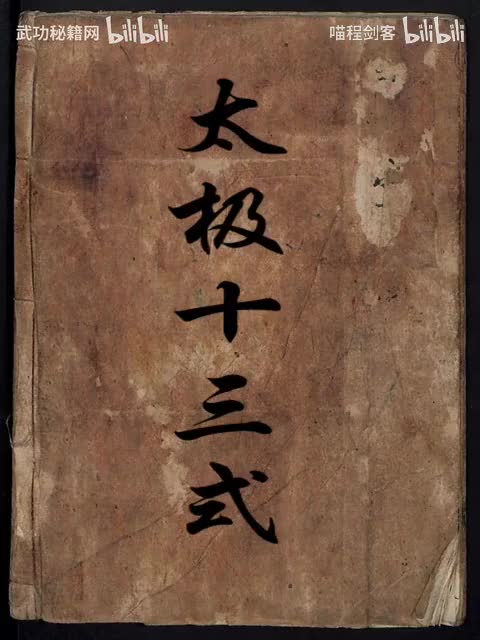 武功秘籍网 bilibili
喵程剑客 bilibili
太极十三式